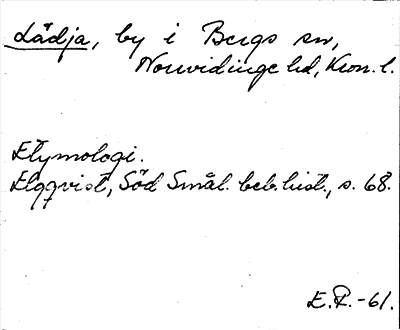 Lädja, by i Bergs sn,
Norvidinge hd, Kron. l.
Etymologi.
Elgqvist, Söd Smål. beb. hist., s. 68.
E.R.-61.